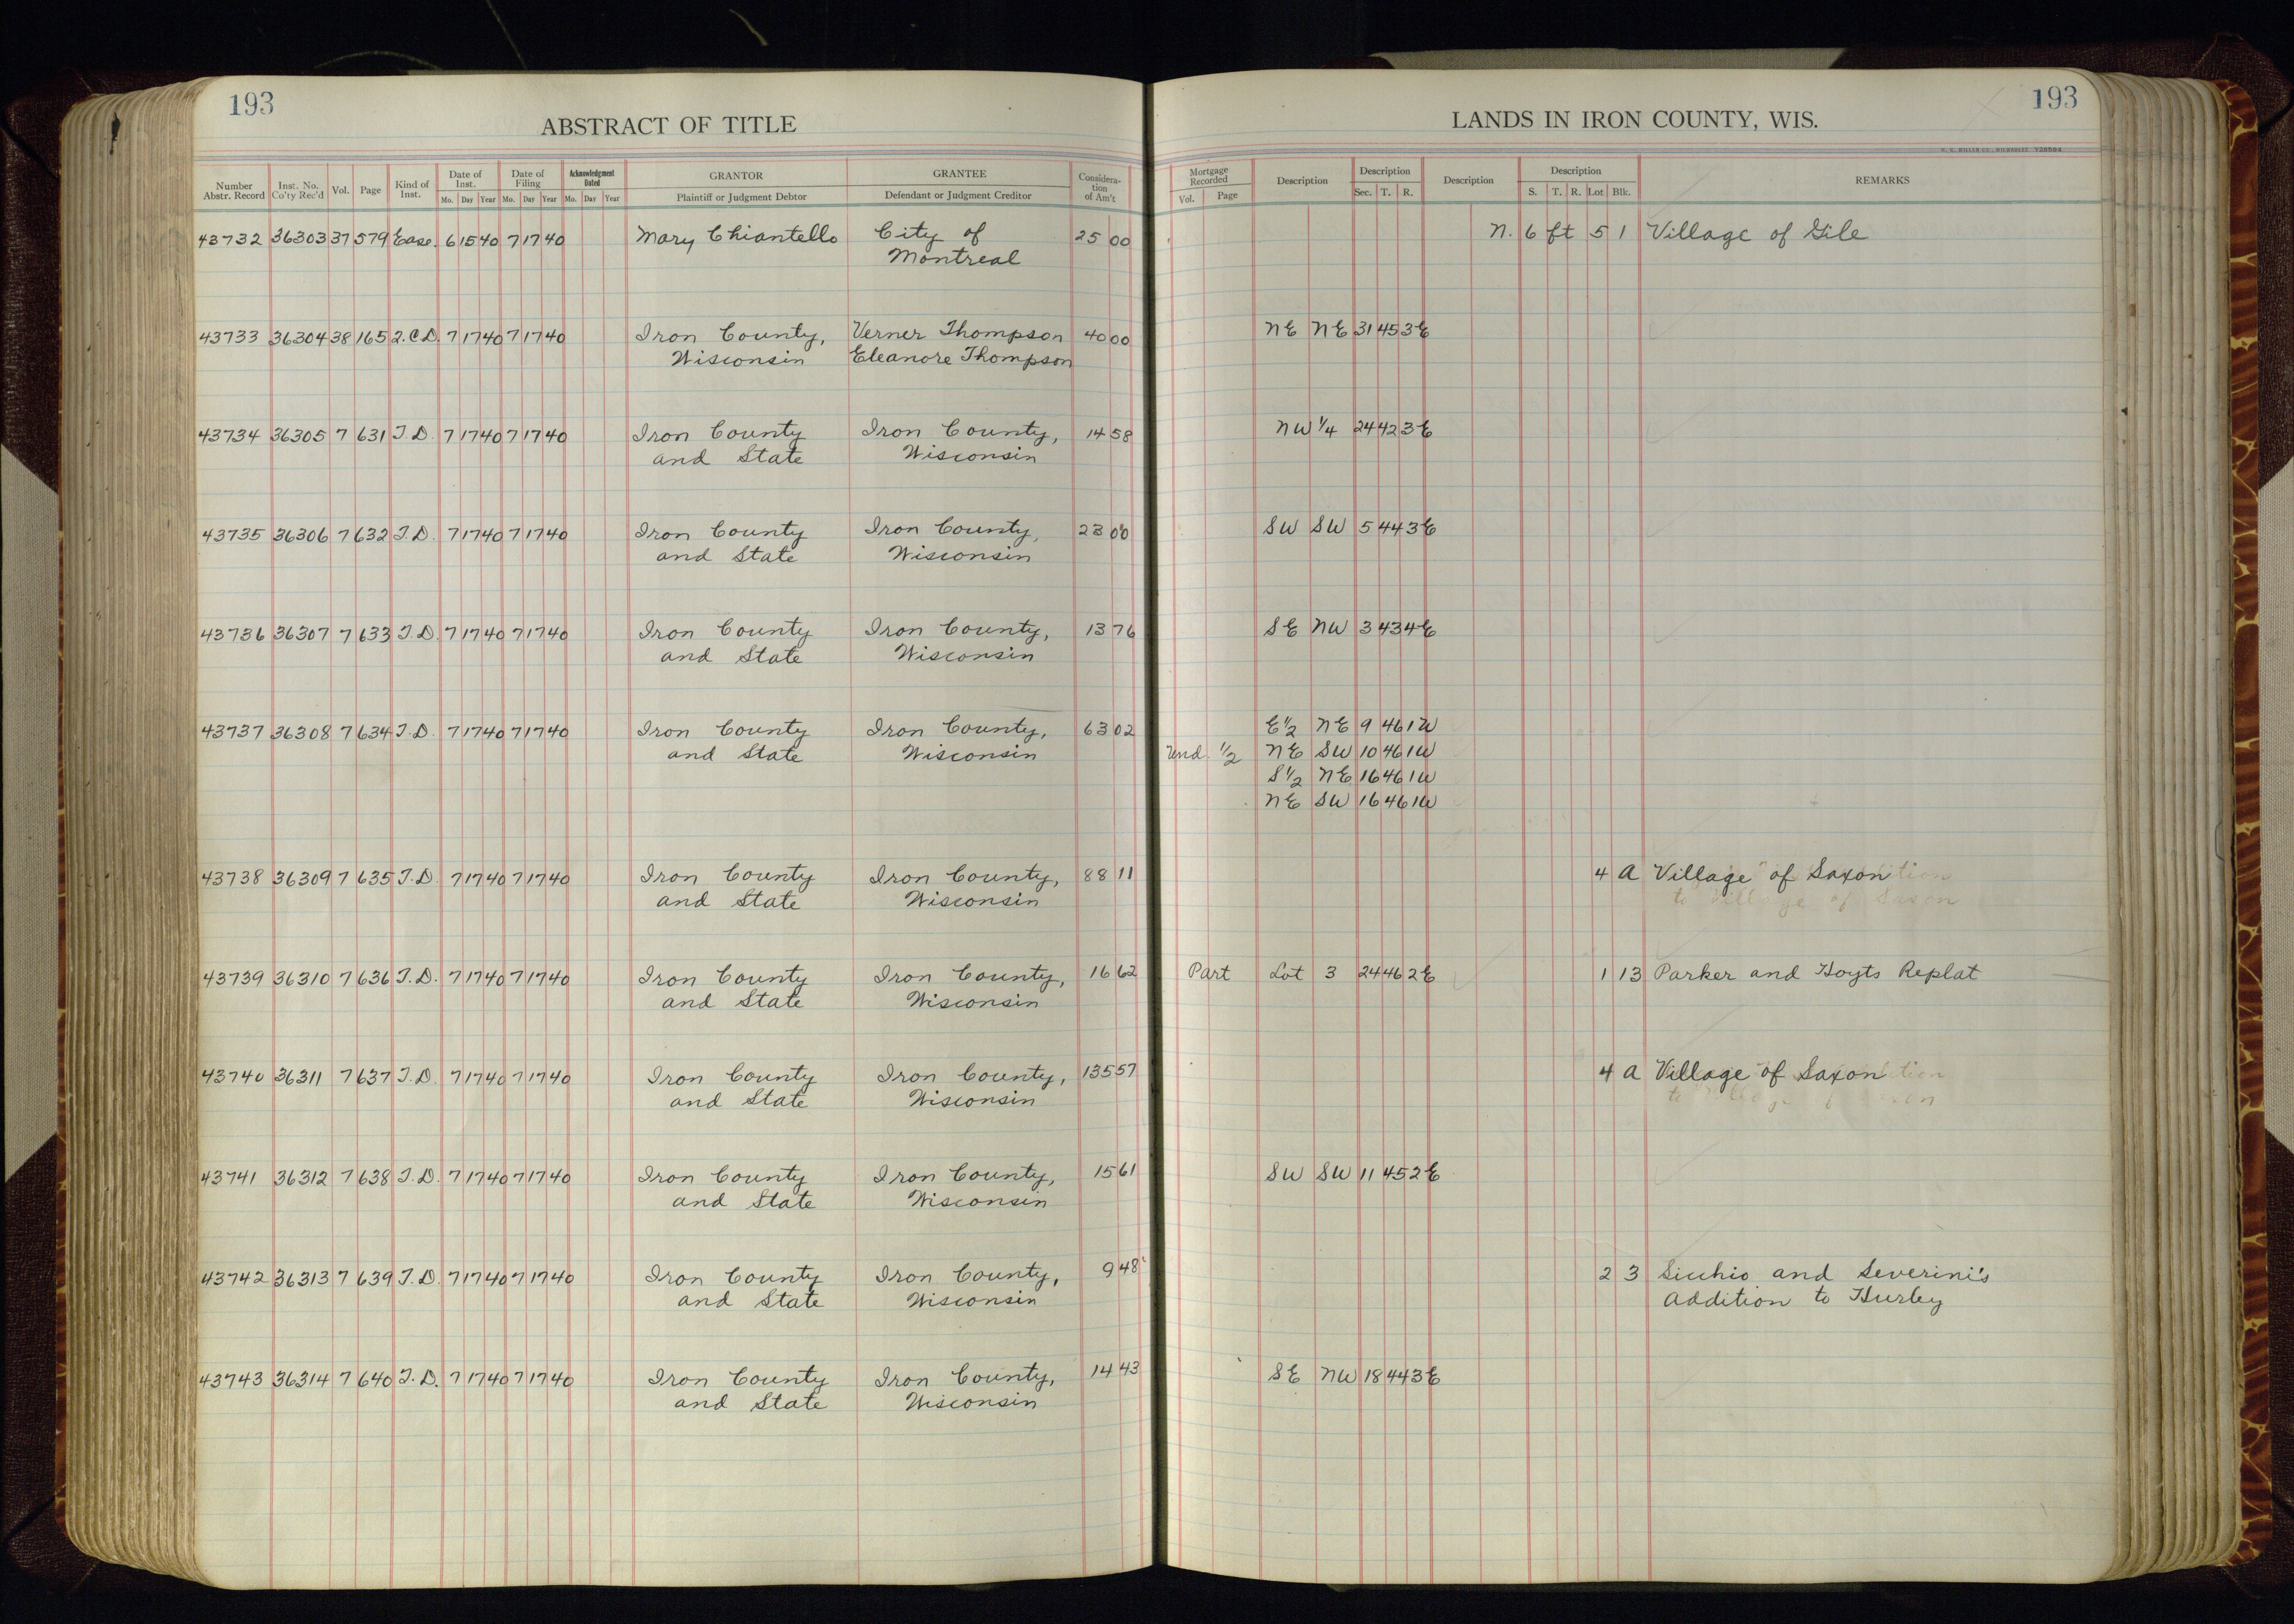 193
ABSTRACT OF TITLE
Number Abstr. Record Inst. No. Co'ty Rec'd Vol. Page Kind of Inst. Date of Inst. Mo. Day Year Date of Filing Mo. Day Year Acknowledgment Dated Mo. Day Year GRANTOR Plaintiff or Judgment Debtor GRANTEE Defendant or Judgment Creditor Considera-tion of Am't
43732 36303 37 579 Ease. 6 15 40 7 17 40 Mary Chiantello City of 25 00
Montreal
43733 36304 38 165 2.C.D. 7 17 40 7 17 40 Iron County, Verner Thompson 40 00
Wisconsin Eleanore Thompson
43734 36305 7 631 T.D. 7 17 40 7 17 40 Iron County Iron County, 14 58
and State Wisconsin
43735 36306 7 632 T.D. 7 17 40 7 17 40 Iron County Iron County, 23 00
and State Wisconsin
43736 36307 7 633 T.D. 7 17 40 7 17 40 Iron County Iron County, 13 76
and State Wisconsin
43737 36308 7 634 T.D. 7 17 40 7 17 40 Iron County Iron County, 63 02
and State Wisconsin
43738 36309 7 635 T.D. 7 17 40 7 17 40 Iron County Iron County, 88 11
and State Wisconsin
43739 36310 7 636 T.D. 7 17 40 7 17 40 Iron County Iron County, 16 62
and State Wisconsin
43740 36311 7 637 T.D. 7 17 40 7 17 40 Iron County Iron County, 135 57
and State Wisconsin
43741 36312 7 638 T.D. 7 17 40 7 17 40 Iron County Iron County, 15 61
and State Wisconsin
43742 36313 7 639 T.D. 7 17 40 7 17 40 Iron County Iron County, 9 48
and State Wisconsin
43743 36314 7 640 T.D. 7 17 40 7 17 40 Iron County Iron County, 14 43
and State Wisconsin
193
LANDS IN IRON COUNTY, WIS.
Mortgage Recorded Vol. Page Description Description Sec. T. R. Description Description S. T. R. Lot Blk. REMARKS
N. 6 ft 5 1 Village of Gile
NE NE 31 45 3E
NW 1/4 24 42 3E
SW SW 5 44 3E
SE NW 3 43 4E
E 1/2 NE 9 46 1W
Und. 1/2 NE SW 10 46 1W
S 1/2 NE 16 46 1W
NE SW 16 46 1W
4 A Village of Saxon
to Village of Saxon
Part Lot 3 24 46 2E 1 13 Parker and Hoyts Replat
4 A Village of Saxon
SW SW 11 45 2E
2 3 Sicchio and Severini's
Addition to Hurley
SE NW 18 44 3E